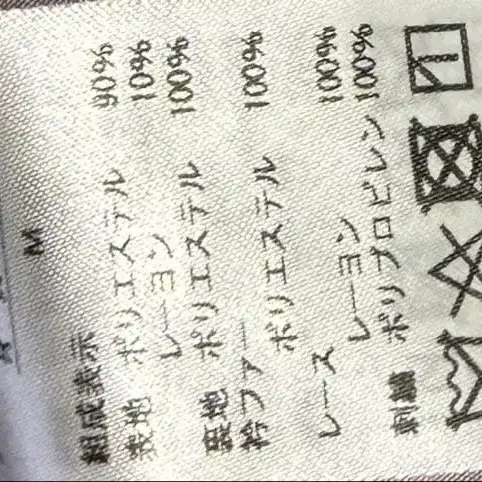 M
組成表示
表地 ポリエステル 90%
レーヨン 10%
裏地 ポリエステル 100%
衿ファー
ポリエステル 100%
レース
レーヨン 100%
刺繍 ポリプロピレン 100%